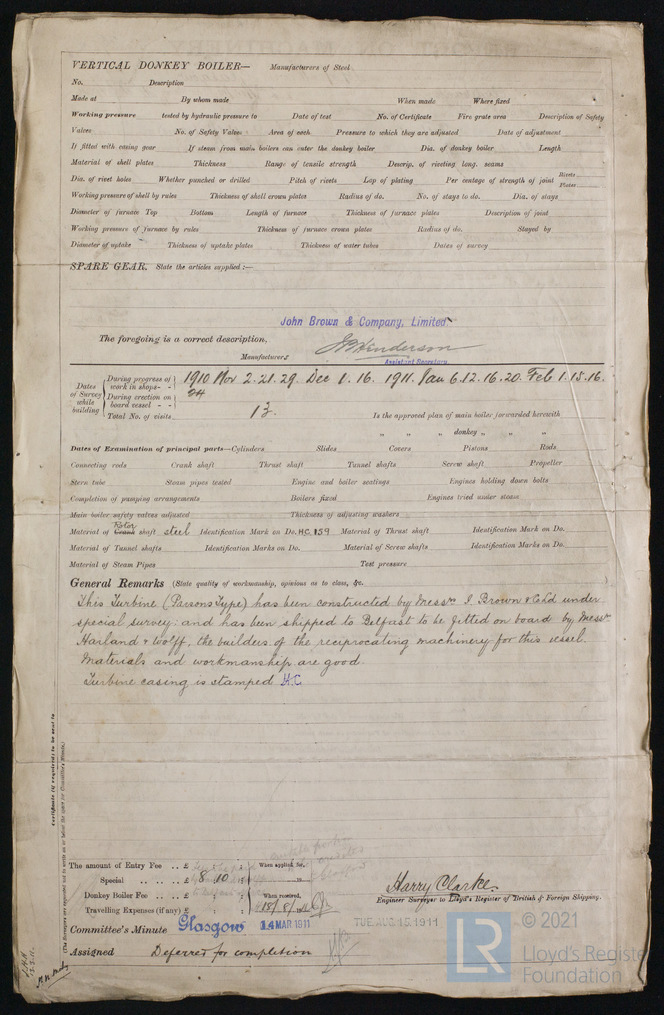 VERTICAL DONKEY BOILER— Manufacturers of Steel
No. Description
Made at By whom made When made Where fixed
Working pressure tested by hydraulic pressure to Date of test No. of Certificate Fire grate area Description of Safety
Valves No. of Safety Valves Area of each Pressure to which they are adjusted Date of adjustment
If fitted with casing gear If steam from main boilers can enter the donkey boiler Dia. of donkey boiler Length
Material of shell plates Thickness Range of tensile strength Descrip. of riveting long. seams
Dia. of rivet holes Whether punched or drilled Pitch of rivets Lap of plating Per centage of strength of joint Rivets Plates
Working pressure of shell by rules Thickness of shell crown plates Radius of do. No. of stays to do. Dia. of stays
Diameter of furnace Top Bottom Length of furnace Thickness of furnace plates Description of joint
Working pressure of furnace by rules Thickness of furnace crown plates Radius of do. Stayed by
Diameter of uptake Thickness of uptake plates Thickness of water tubes Dates of survey
SPARE GEAR. State the articles supplied :—
John Brown & Company, Limited
The foregoing is a correct description,
Henderson
Manufacturers
Assistant Secretary
Dates of Survey while building
During progress of work in shops - - 1910 Nov 2. 21. 29. Dec 1. 16. 1911. Jan 6. 12. 16. 20. Feb 1. 15. 16.
During erection on board vessel - - 24
Total No. of visits 13. Is the approved plan of main boiler forwarded herewith
" " donkey " " "
Dates of Examination of principal parts—Cylinders Slides Covers Pistons Rods
Connecting rods Crank shaft Thrust shaft Tunnel shafts Screw shaft Propeller
Stern tube Steam pipes tested Engine and boiler seatings Engines holding down bolts
Completion of pumping arrangements Boilers fixed Engines tried under steam
Main boiler safety valves adjusted Thickness of adjusting washers
Material of Crank Rotor shaft steel Identification Mark on Do. H.C. 159 Material of Thrust shaft Identification Mark on Do.
Material of Tunnel shafts Identification Marks on Do. Material of Screw shafts Identification Marks on Do.
Material of Steam Pipes Test pressure
General Remarks (State quality of workmanship, opinions as to class, &c.
This Turbine (Parsons Type) has been constructed by Messrs J. Brown & Co Ld under
special survey: and has been shipped to Belfast to be fitted on board by Messrs
Harland & Wolff, the builders of the reciprocating machinery for this vessel.
Materials and workmanship are good
Turbine casing is stamped H.C.
Certificate (if required) to be sent to
(The Surveyors are requested not to write on or below the space for Committee's Minute.)
The amount of Entry Fee .. £ : : When applied for,
Special .. .. .. £ 8 : 10 :
Donkey Boiler Fee .. .. £ : : When received,
Travelling Expenses (if any) £ : : 18/8/11
Harry Clarke.
Engineer Surveyor to Lloyd's Register of British & Foreign Shipping.
Committee's Minute Glasgow 14 MAR 1911 TUE. AUG. 15. 1911
Assigned Deferred for completion
LR © 2021
Lloyd's Registe
Foundation